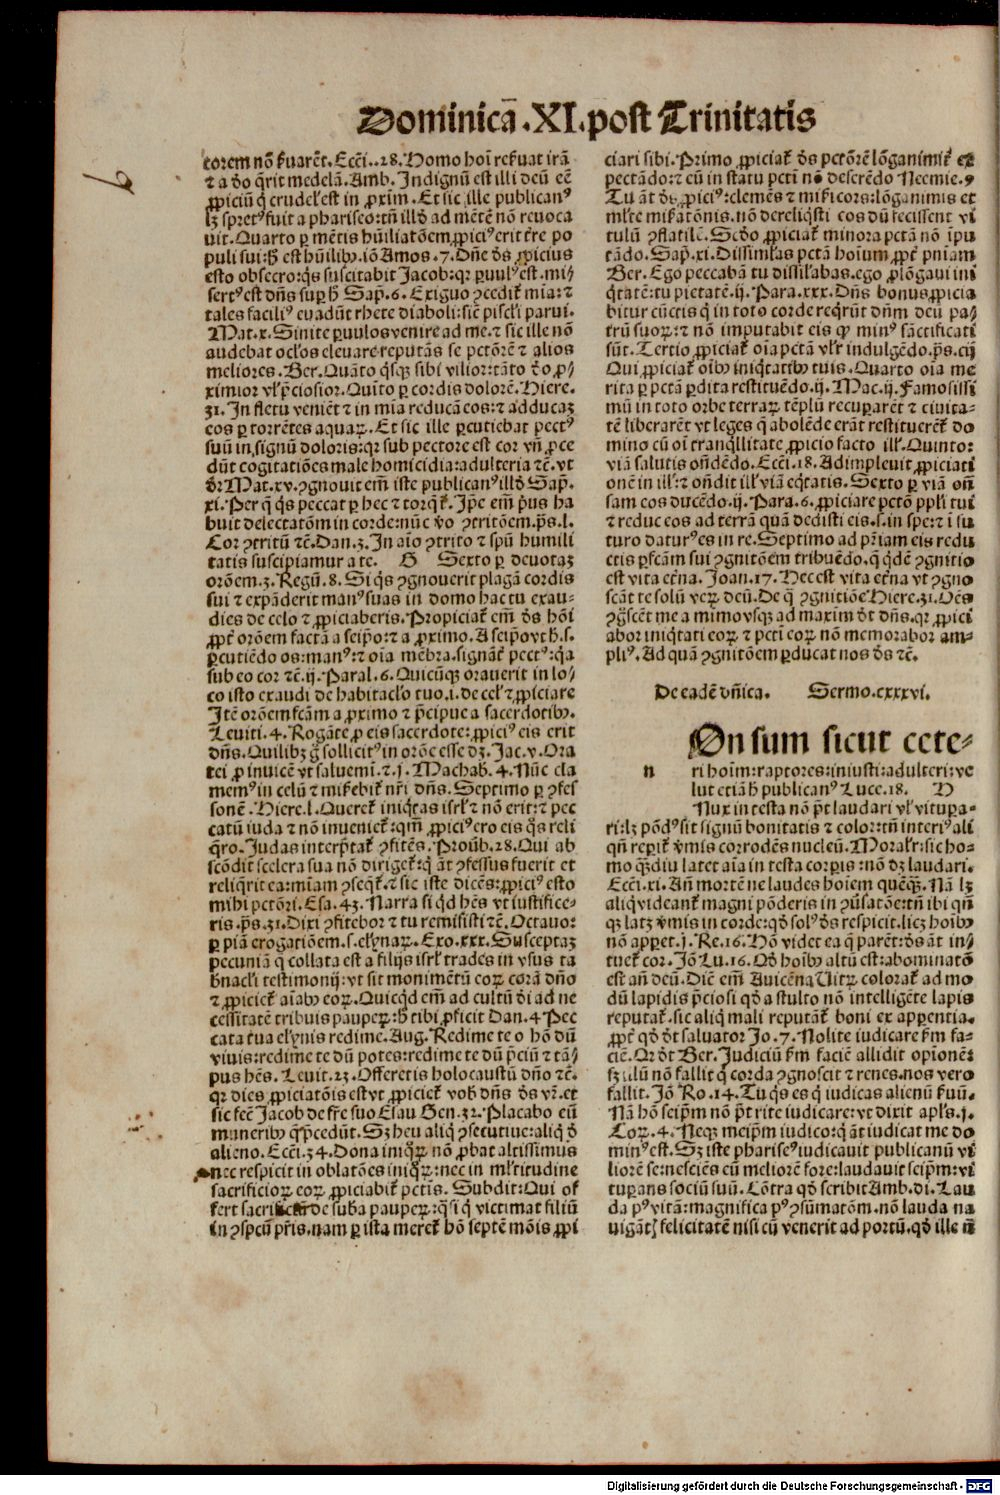 Dominicā.XI.post Trinitatis
torem nō ẜuarēt. Ecc̄i..28. Homo hoī reẜuat irā
⁊ a dō q̄rit medelā. Amb. Indignū est illi deū eē
ꝓpiciū q̄ crudeľ est in ꝓxim̄. Et sic ille publicanꝰ
lꝫ spretꝰ fuit a phariseo: tn̄ illd̄ ad mētē nō reuoca
uit. Quarto ꝑ mētis hūiliatōem ꝓpiciꝰ erit t̄re po
puli sui: ħ est hūilibꝰ. iō Amos .7. Dn̄e d̄s ꝓpicius
esto obsecro: q̄s suscitabit Jacob: qꝛ ꝑuulꝰ est. mi⸗
sertꝰ est dn̄s suꝑ ħ Sap̄. 6. Exiguo ꝯcedit̄ mīa: ⁊
tales faciliꝰ euadūt rhete diaboli: sic̄ pisc̄li parui.
Mat. x. Sinite ꝑuulos venire ad me. ⁊ sic ille nō
audebat oc̄los eleuare reputās se pctōrē ⁊ alios
meliores. Ber. Quāto q̄sqꝫ sibi vilior: tāto d̄o ꝓ⸗
ximior vľ p̄ciosior. Quīto ꝑ cordis dolorē. Hiere.
31. In fletu veniēt ⁊ in mīa reducā eos: ⁊ adducaꝫ
eos ꝑ torrētes aquaꝝ. Et sic ille ꝑcutiebat pectꝰ
suū in signū doloris: qꝛ sub pectore est cor vn̄ ꝓce
dūt cogitatiōes male homicidia: adulteria ⁊c̄. vt
dr̄ Mat. xv. ꝯgnouit em̄ iste publicanꝰ illd̄ Sap̄.
xi. Per q̄ q̄s peccat ꝑ hec ⁊ torq̄t̄. Ip̄e em̄ p̄us ha
buit delectatōm in corde: nūc v̄o ꝯtritōem. p̄s. l.
Cor ꝯtritū ⁊c̄. Dan. 3. In aīo ꝯtrito ⁊ spū humili
tatis suscipiamur a te. G Sexto ꝑ deuotaꝫ
orōem. 3. Regū. 8. Si q̄s ꝯgnouerit plagā cordis
sui ⁊ expāderit manꝰ suas in domo hac tu exau⸗
dies de celo ⁊ ꝓpiciaberis. Propiciat̄ em̄ d̄s hōi
ꝓpt̄ orōem factā a seip̄o: ⁊ a ꝓximo. A seip̄o vt ħ. s.
ꝑcutiēdo os: manꝰ: ⁊ oīa mēbra. signāt̄ pectꝰ: q̄a
sub eo cor ⁊c̄. ij. Paral. 6. Quicūqꝫ orauerit in lo⸗
co isto exaudi de habitac̄lo tuo. i. de cel̄ ⁊ ꝓpiciare
Itē orōem fcām a ꝓximo ⁊ p̄cipue a sacerdotibꝰ.
Leuiti. 4. Rogāte ꝓ eis sacerdote: ꝓpiciꝰ eis erit
dn̄s. Quilibꝫ g̊ sollicitꝰ in orōe esse dꝫ. Jac. v. Ora
te ꝓ inuicē vt saluemī. ⁊. j. Machab̄. 4. Nūc cla
memꝰ in celū ⁊ mik̄ebit̄ nr̄i dn̄s. Septimo ꝑ ꝯfes
sonē. Hiere. l. Queret̄ iniq̄tas isrl̄ ⁊ nō erit: ⁊ pec
catū iuda ⁊ nō inueniet̄: qm̄ ꝓpiciꝰ ero eis q̄s reli
q̄ro. Judas interp̄tat̄ ꝯfitēs. Prou̅b. 28. Qui ab
scōdit scelera sua nō diriget̄: q̄ āt ꝯfessus fuerit et
reliq̄rit ea: mīam ꝯseq̄t̄. ⁊ sic iste dicēs: ꝓpiciꝰ esto
mihi pctōri. Esa. 43. Narra si qd̄ hēs vt iustifice⸗
ris. p̄s. 31. Dixi ꝯfitebor ⁊ tu remisisti ⁊c̄. Octauo:
ꝑ piā erogatiōem. s. elynaꝝ. Exo. xxx. Susceptaꝫ
pecuniā q̄ collata est a filijs isrl̄ trades in vsus ta
b̄nac̄li testimonij: vt sit monimētū eoꝝ corā dn̄o
⁊ ꝓpiciet̄ aīabꝰ eoꝝ. Quicqd̄ em̄ ad cultū d̄i ad ne
cessitatē tribuis pauperū: ħ tibi ꝓficit Dan. 4 Pec
cata tua elynis redime. Aug. Redime te o hō dū
viuis: redime te dū potes: redime te dū p̄ciū ⁊ tā⸗
pus hēs. Leuit. 23. Offeretis holocaustū dn̄o ⁊c̄.
qꝛ dies ꝓpiciatōis est vt ꝓpiciet̄ vob̄ dn̄s d̄s vr̄. et
sic fec̄ Jacob de fr̄e suo Esau Gen. 32. Placabo eū
muneribꝰ q̄ p̄cedūt. Sꝫ heu aliq̄ ꝯsecutiue: aliq̄ d̄
alieno. Ecc̄i. 34. Dona iniq̄ꝝ nō ꝓbat altissimus
nec respicit in oblatōes iniq̄ꝝ: nec in ml̄titudine
sacrificioꝝ eoꝝ ꝓpiciabit̄ pctīs. Subdit: Qui of
fert sacrificiū de suba pauperū: q̄si q̄ victimat filiū
in ꝯspcū pr̄is. nam ꝑ ista meret̄ hō septē mōis ꝓpi
ciari sibi. Primo ꝓpiciat̄ d̄s pctōrē lōganimit̄ ex
pectādo: ⁊ eū in statu pcti nō deserēdo Neemie. 9
Tu āt d̄s ꝓpiciꝰ: clemēs ⁊ mik̄icors: lōganimis et
ml̄te mik̄atōnis. nō dereliq̄sti eos dū fecissent vi
tulū ꝯflatilē. Scd̄o ꝓpiciat̄ minora pctā nō īpu
tādo. Sap̄. xi. Dissimlas pctā hoīum ꝓpt̄ pn̄iam
Ber. Ego peccabā tu dissil̄abas. ego ꝓlōgaui ini
q̄tatē: tu pietatē. ij. Para. xxx. Dn̄s bonus ꝓpicia
bitur cūctis q̄ in toto corde reqr̄ūt dn̄m deū pa⸗
trū suoꝝ: ⁊ nō imputabit eis ꝙ minꝰ sāctificati
sūt. Tertio ꝓpiciat̄ oīa pctā vl̄r indulgēdo. p̄s. cij
Qui ꝓpiciat̄ oībꝰ iniq̄tatibꝰ tuis. Quarto oīa me
rita ꝑ pctā ꝑdita restituēdo. ij. Mac. ij. Famosissi
mū in toto orbe terraꝝ tēplū recuꝑarēt ⁊ ciuita⸗
tē liberarēt vt leges q̄ abolēde erāt restituerēt̄ do
mino cū oī tranq̄llitate ꝓpicio facto ill̄. Quinto:
viā salutis on̄dēdo. Ecc̄i. 18. Adimpleuit ꝓpiciati
onē in ill̄: ⁊ on̄dit ill̄ viā eq̄tatis. Sexto ꝑ viā on̄
sam eos ducēdo. ij. Para. 6. ꝓpiciare pctō ppl̄i tui
⁊ reduc eos ad terrā quā dedisti eis. s. in spe: ⁊ ī fu
turo daturꝰ es in re. Septimo ad pr̄iam eis redu
ctis ꝑfcām sui ꝯgnitōem tribuēdo. q̄ qd̄e ꝯgnitio
est vita et̄na. Joan. 17. Hec est vita et̄na vt ꝯgno
scāt te solū veꝝ deū. De q̄ ꝯgnitiōe Hiere. 31. Oēs
ꝯg̊scēt me a mimo vsqꝫ ad maxīm dt̄ dn̄s. qꝛ ꝓpici
abor iniq̄tati eoꝝ ⁊ pcti eoꝝ nō memorabor am⸗
pliꝰ. Ad quā ꝯgnitōem ꝑducat nos d̄s ⁊c̄.
De eadē dn̄ica. Sermo. cxxxvi.
On sum sicut cete⸗
n ri hoīm: raptores: iniusti: adulteri: ve
lut etiā ħ publicanꝰ Luce. 18. H
Nux in testa nō pt̄ laudari vľ vitupa⸗
ri: lꝫ pōdꝰ sit signū bonitatis ⁊ color: tn̄ interiꝰ ali
qn̄ reꝑit̄ v̄mis corrodēs nucleū. Moralr̄: sic ho⸗
mo q̄ꝫdiu latet aīa in testa corꝑis: nō dꝫ laudari.
Ecc̄i. xi. An̄ mortē ne laudes hoīem quēq̄ꝫ. Nā lꝫ
aliq̄ videant̄ magni pōderis in ꝯūsatōe: tn̄ ibi qn̄
qꝫ latꝫ v̄mis in corde: qd̄ solꝰ d̄s respicit. licꝫ hoībꝰ
nō appet. j. Re. 16. Hō videt ea q̄ parēt: d̄s āt in⸗
tuet̄ cor. Jō Lu. 16. Qd̄ hoībꝰ altū est: abominatō
est an̄ deū. Dic̄ em̄ Auicēna Uitꝝ colorat̄ ad mo
dū lapidis p̄ciosi qd̄ a stulto nō intelligēte lapis
reputat̄. sic aliq̄ mali reputāt̄ boni ex apparentia.
ꝓpt̄ qd̄ dt̄ saluator Jo. 7. Nolite iudicare ẜm fa⸗
ciē. Qꝛ dt̄ Ber. Judiciū ẜm faciē allidit opionē:
sꝫ illū nō fallit q̄ corda ꝯgnoscit ⁊ renes. nos vero
fallit. Jō Ro. 14. Tu q̄s es q̄ iudicas alienū ẜuū.
Nā hō seip̄m nō pt̄ rite iudicare: vt dixit apl̄s. j.
Coꝝ. 4. Neqꝫ meip̄m iudico: q̄ āt iudicat me do
minꝰ est. Sꝫ iste phariseꝰ iudicauit publicanū vi
liorē se: nesciēs eū meliorē fore: laudauit seip̄m: vi
tuꝑans sociū suū. Cōtra qd̄ scribit Amb. di. Lau
da pꝰ vitā: magnifica pꝰ ꝯsūmatōm. nō lauda na
uigātꝫ felicitatē nisi cū venerit ad portū. qd̄ ille n̄
Digitalisierung gefördert durch die Deutsche Forschungsgemeinschaft - DFG